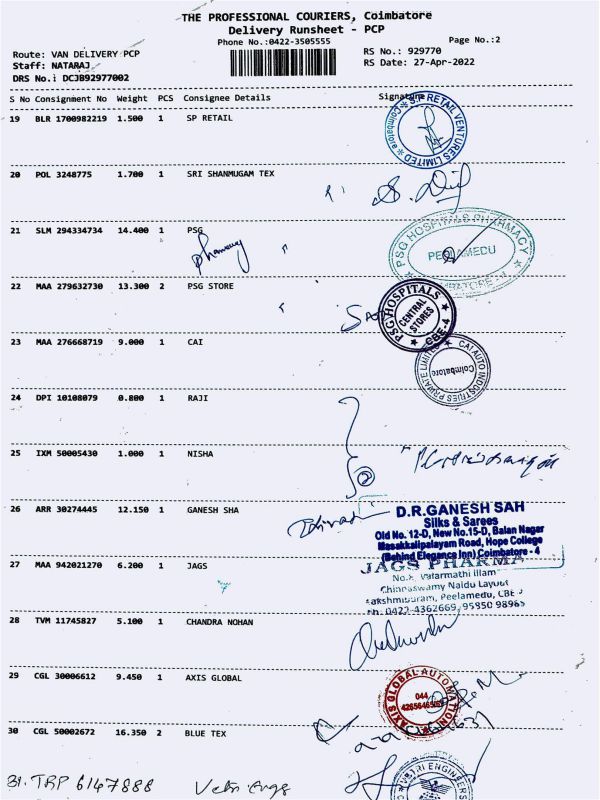 THE PROFESSIONAL COURIERS, Coimbatore
Delivery Runsheet - PCP
Phone No.:0422-3505555
Page No.:2
Route: VAN DELIVERY PCP
RS No.: 929770
Staff: NATARAJ
RS Date: 27-Apr-2022
DRS No.: DCJB92977002
S No Consignment No Weight PCS Consignee Details Signature
19 BLR 1700982219 1.500 1 SP RETAIL
S.P RETAIL VENTURES LIMITED Coimbatore
20 POL 3248775 1.700 1 SRI SHANMUGAM TEX
21 SLM 294334734 14.400 1 PSG
pharmacy
PSG HOSPITALS PHARMACY
PEELAMEDU
22 MAA 279632730 13.300 2 PSG STORE
PSG HOSPITALS
CENTRAL
STORES
CBE-4
23 MAA 276668719 9.000 1 CAI
CAI AUTO INDUSTRIES PRIVATE LIMITED
Coimbatore
24 DPI 10108079 0.800 1 RAJI
25 IXM 50005430 1.000 1 NISHA
2
26 ARR 30274445 12.150 1 GANESH SHA
D.R.GANESH SAH
Silks & Sarees
Old No. 12-D, New No.15-D, Balan Nagar
Masakkalipalayam Road, Hope College
(Behind Elegance Inn) Coimbatore - 4
27 MAA 942021270 6.200 1 JAGS
JAGS PHARMA
Vatarmathi Illam
Chinnaswamy Naidu Layout
Peelamedu, CBE
Ph: 0422-4362669, 95850 98965
28 TVM 11745827 5.100 1 CHANDRA NOHAN
29 CGL 30006612 9.450 1 AXIS GLOBAL
AXIS GLOBAL AUTOMATION
044
30 CGL 50002672 16.350 2 BLUE TEX
31. TRP 6147888 Vetri Engg
VETRI ENGINEERS